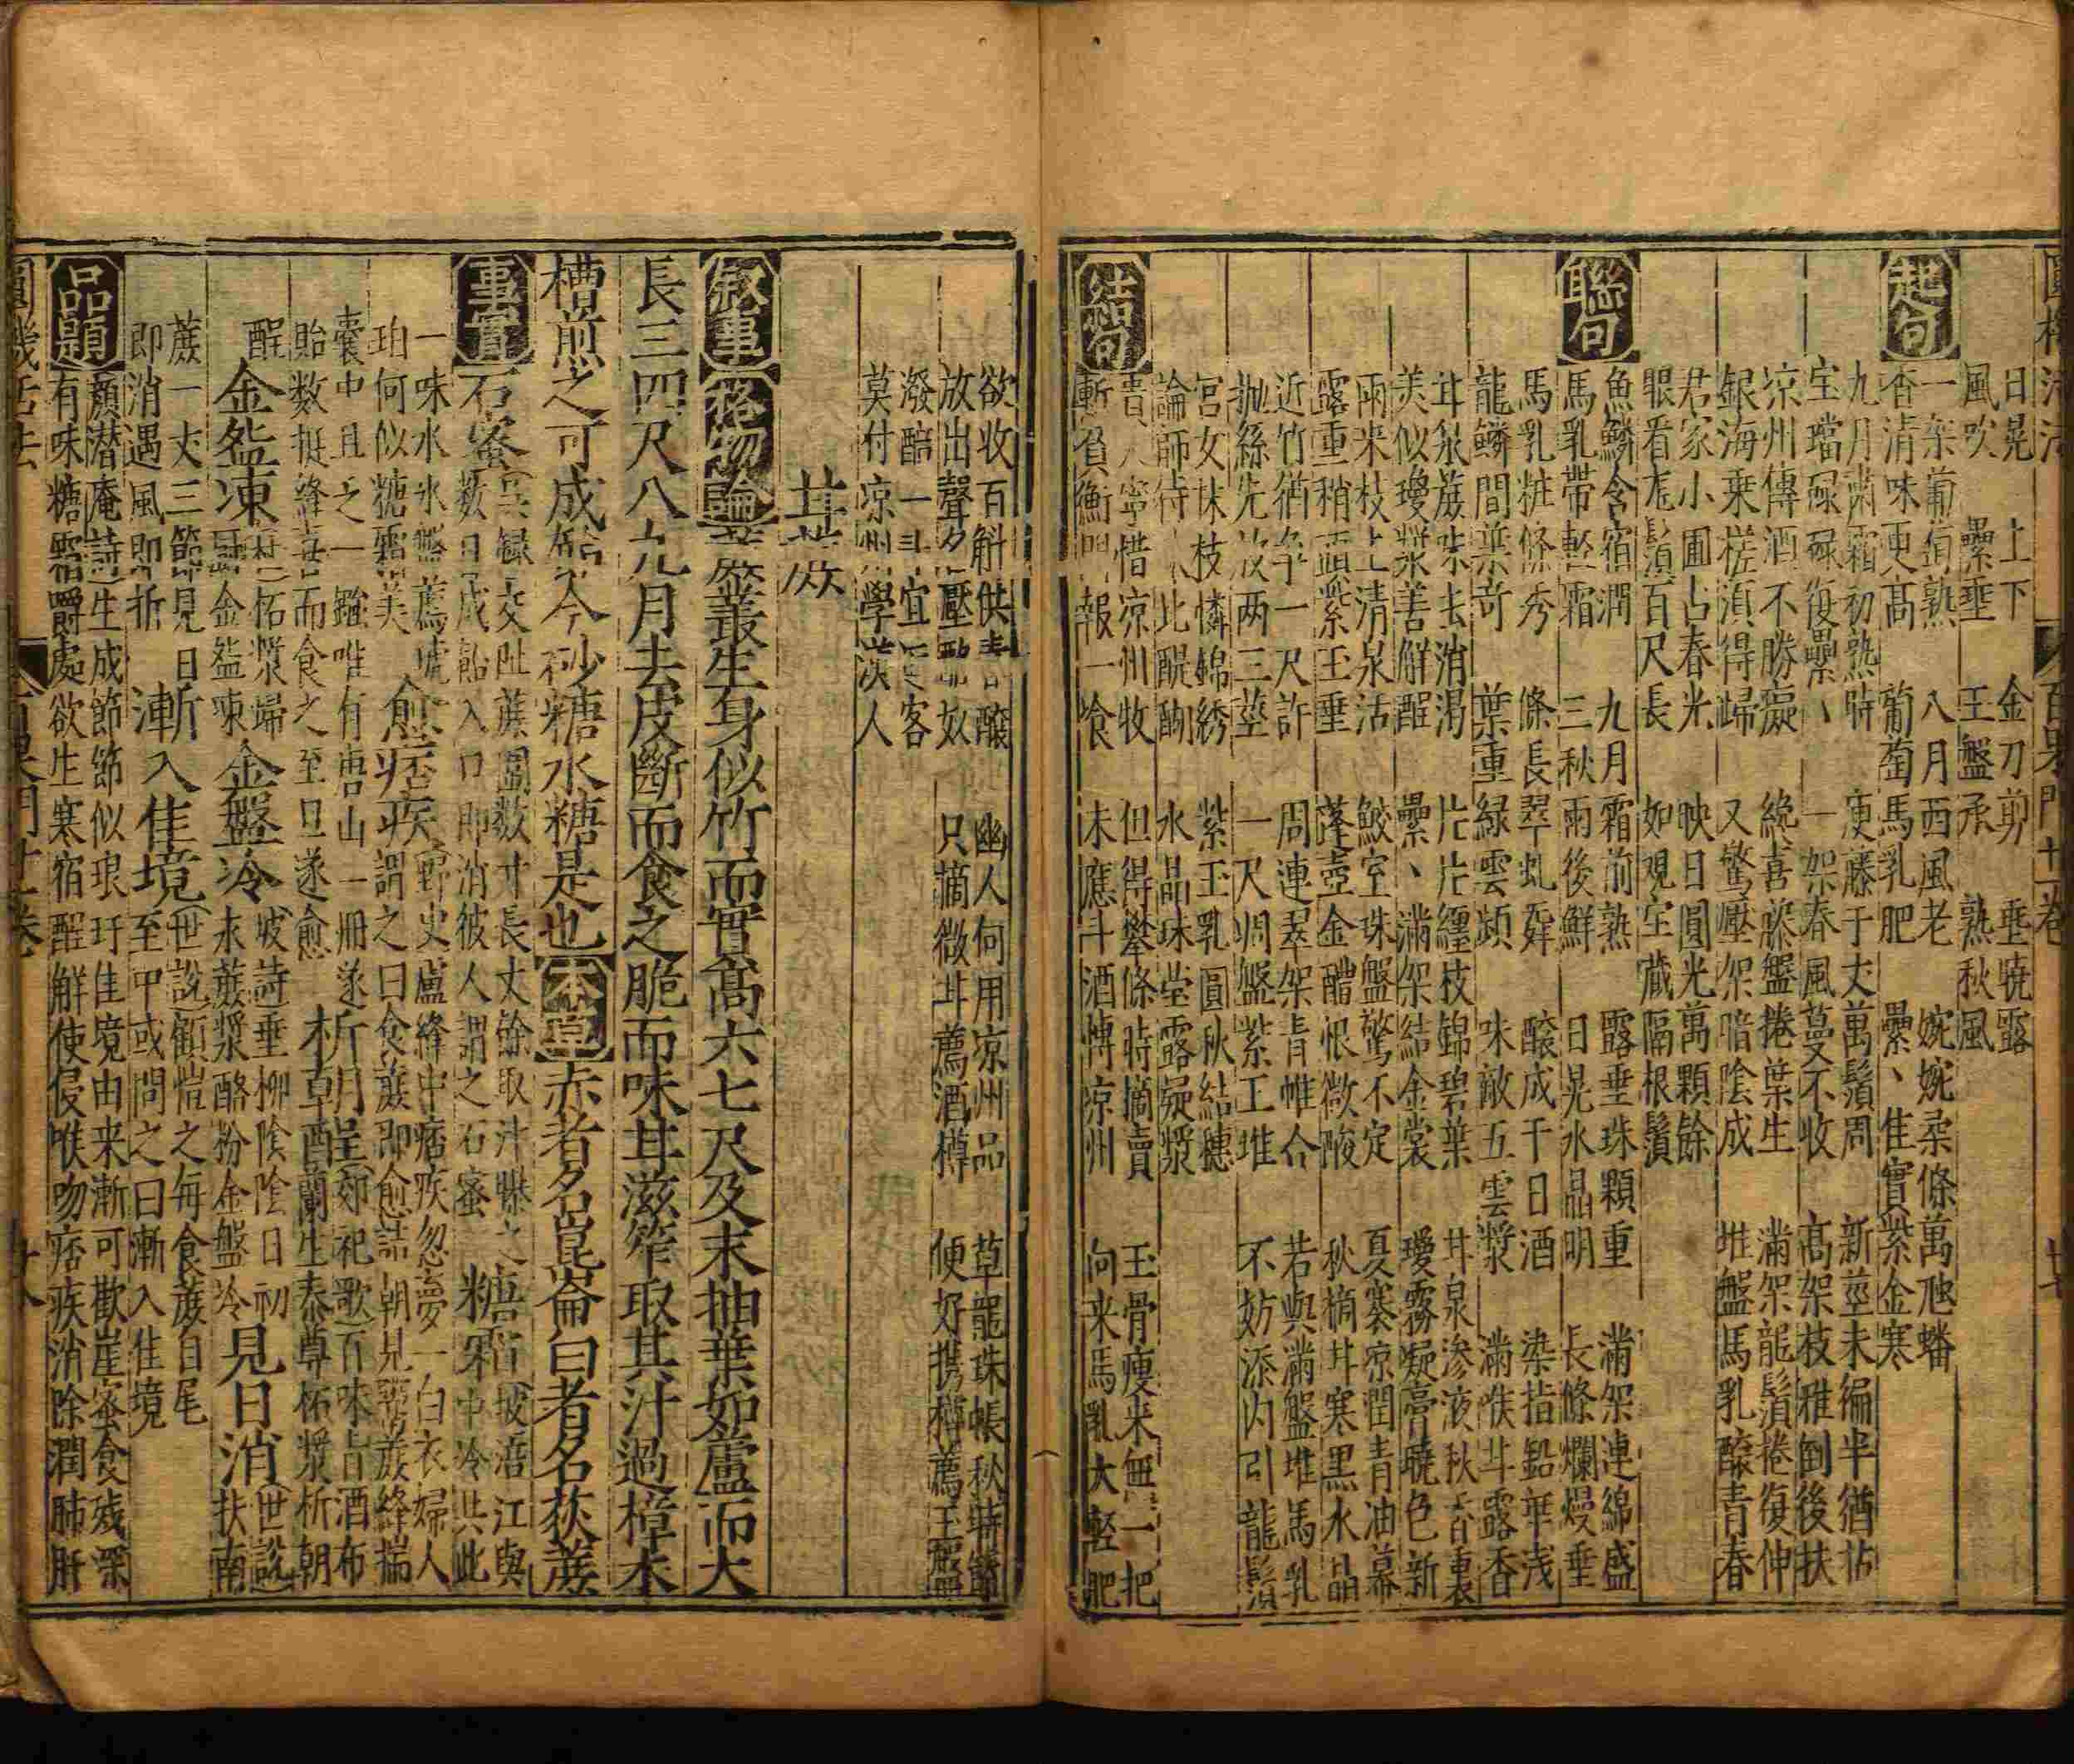 圓機活法 百果門十一卷 廿七
日晃 上下 金刀剪 垂曉露
風吹 纍垂 玉盤承 熟秋風
起句
一架葡萄熟 八月西風老 婉婉柔條萬虺蟠
香清味更高 葡萄馬乳肥 纍〻佳實紫金寒
九月肅霜初熟時 庚藤于丈萬鬚周 新莖未徧半猶枯
宝璫碌碌復纍〻 一架春風蔓不收 高架枝稚倒後扶
凉州傳酒不勝凝 絶喜藤盤捲葉生 滿架龍鬚捲復伸
銀海乗槎須得歸 又驚壓架暗陰成 堆盤馬乳醸青春
君家小圃占春光 映日圓光萬顆餘
眼看虎鬚百尺長 如観宝蔵隔根鬚
聯句
魚鱗含宿潤 九月霜前熟 露垂珠顆重 滿架連綿盛
馬乳帶輕霜 三秋雨後鮮 日晃水晶明 長條爛熳垂
馬乳粧條秀 條長翠虬 醸成千日酒 染指鉛華浅
龍鱗間葉竒 葉重緑雲頻 味敵五雲漿 滿喉甘露香
甘泉蔗味去消渇 片片纒枝錦碧葉 甘泉滲液秋香裏
美似瓊漿善解酲 纍〻滿架結金裳 瓊霧凝膏曉色新
雨来枝上清泉沽 鮫室珠盤驚不定 夏寨凉潤青油幕
露重稍頭紫玉垂 蓬壺金醴恨微酸 秋摘甘寒黒水晶
近竹猶争一尺許 周連翠架青帷合 若與滿盤堆馬乳
抛絲先放两三莖 一尺凋盤紫玉堆 不妨添内引龍鬚
宮女抹枝憐錦綉 紫玉乳圓秋結穗
論師待 比醍醐 水晶珠瑩露凝漿
結句
昔人寧惜凉州牧 但得攀條時摘賣 玉骨瘦来無一把
暫負衡門報一飡 未應斗酒博凉州 向来馬乳大輕肥
欲收百斛供 醸 幽人何用凉州品 草龍珠帳秋
放出聲名壓酪奴 只摘微甘薦酒樽 便好携樽薦玉
潑醅一斗宜 客
莫付凉州學漢人
甘蔗
叙事 格物論 叢生身似竹而實高六七尺及末抽葉如蘆而大
長三四尺八九月去皮斷而食之脆而味甘滋笮取其汁過樟木
槽煎之可成 今砂糖水糖是也 本草 赤者名崑崙白者名荻蔗
事實
石蜜 録交趾蔗圍数寸長丈餘取汁曝之 糖霜 坡 江與
数日成飴入口即消彼人謂之石蜜 糖 中冷共此
一味水氷盤薦琥 愈痞疾 野史盧絳中痞疾忽夢一白衣婦人
珀何似糖霜美 謂之曰食蔗即愈詰朝見 蔗絳揣
嚢中且乏一鏹唯有唐山一冊遂 析朝酲 郊祀歌百味旨酒布
貽数挺絳 而食之至旦遂愈 析 蘭生泰尊柘漿析朝
酲 金盤凍 柘漿歸 金盤冷 坡詩垂柳陰陰日初 見日消 世説
金盤凍 氷蔗漿酪粉金盤冷 扶南
蔗一丈三節見日 漸入佳境 世説顧愷之毎食蔗自尾
即消遇風即折 至中或問之曰漸入佳境
品題 顔潜庵詩 生成節節似琅玕佳境由来漸可歡崖蜜食残深
有味糖霜嚼處欲生寒宿酲解使侵喉吻痞疾消除潤肺肝